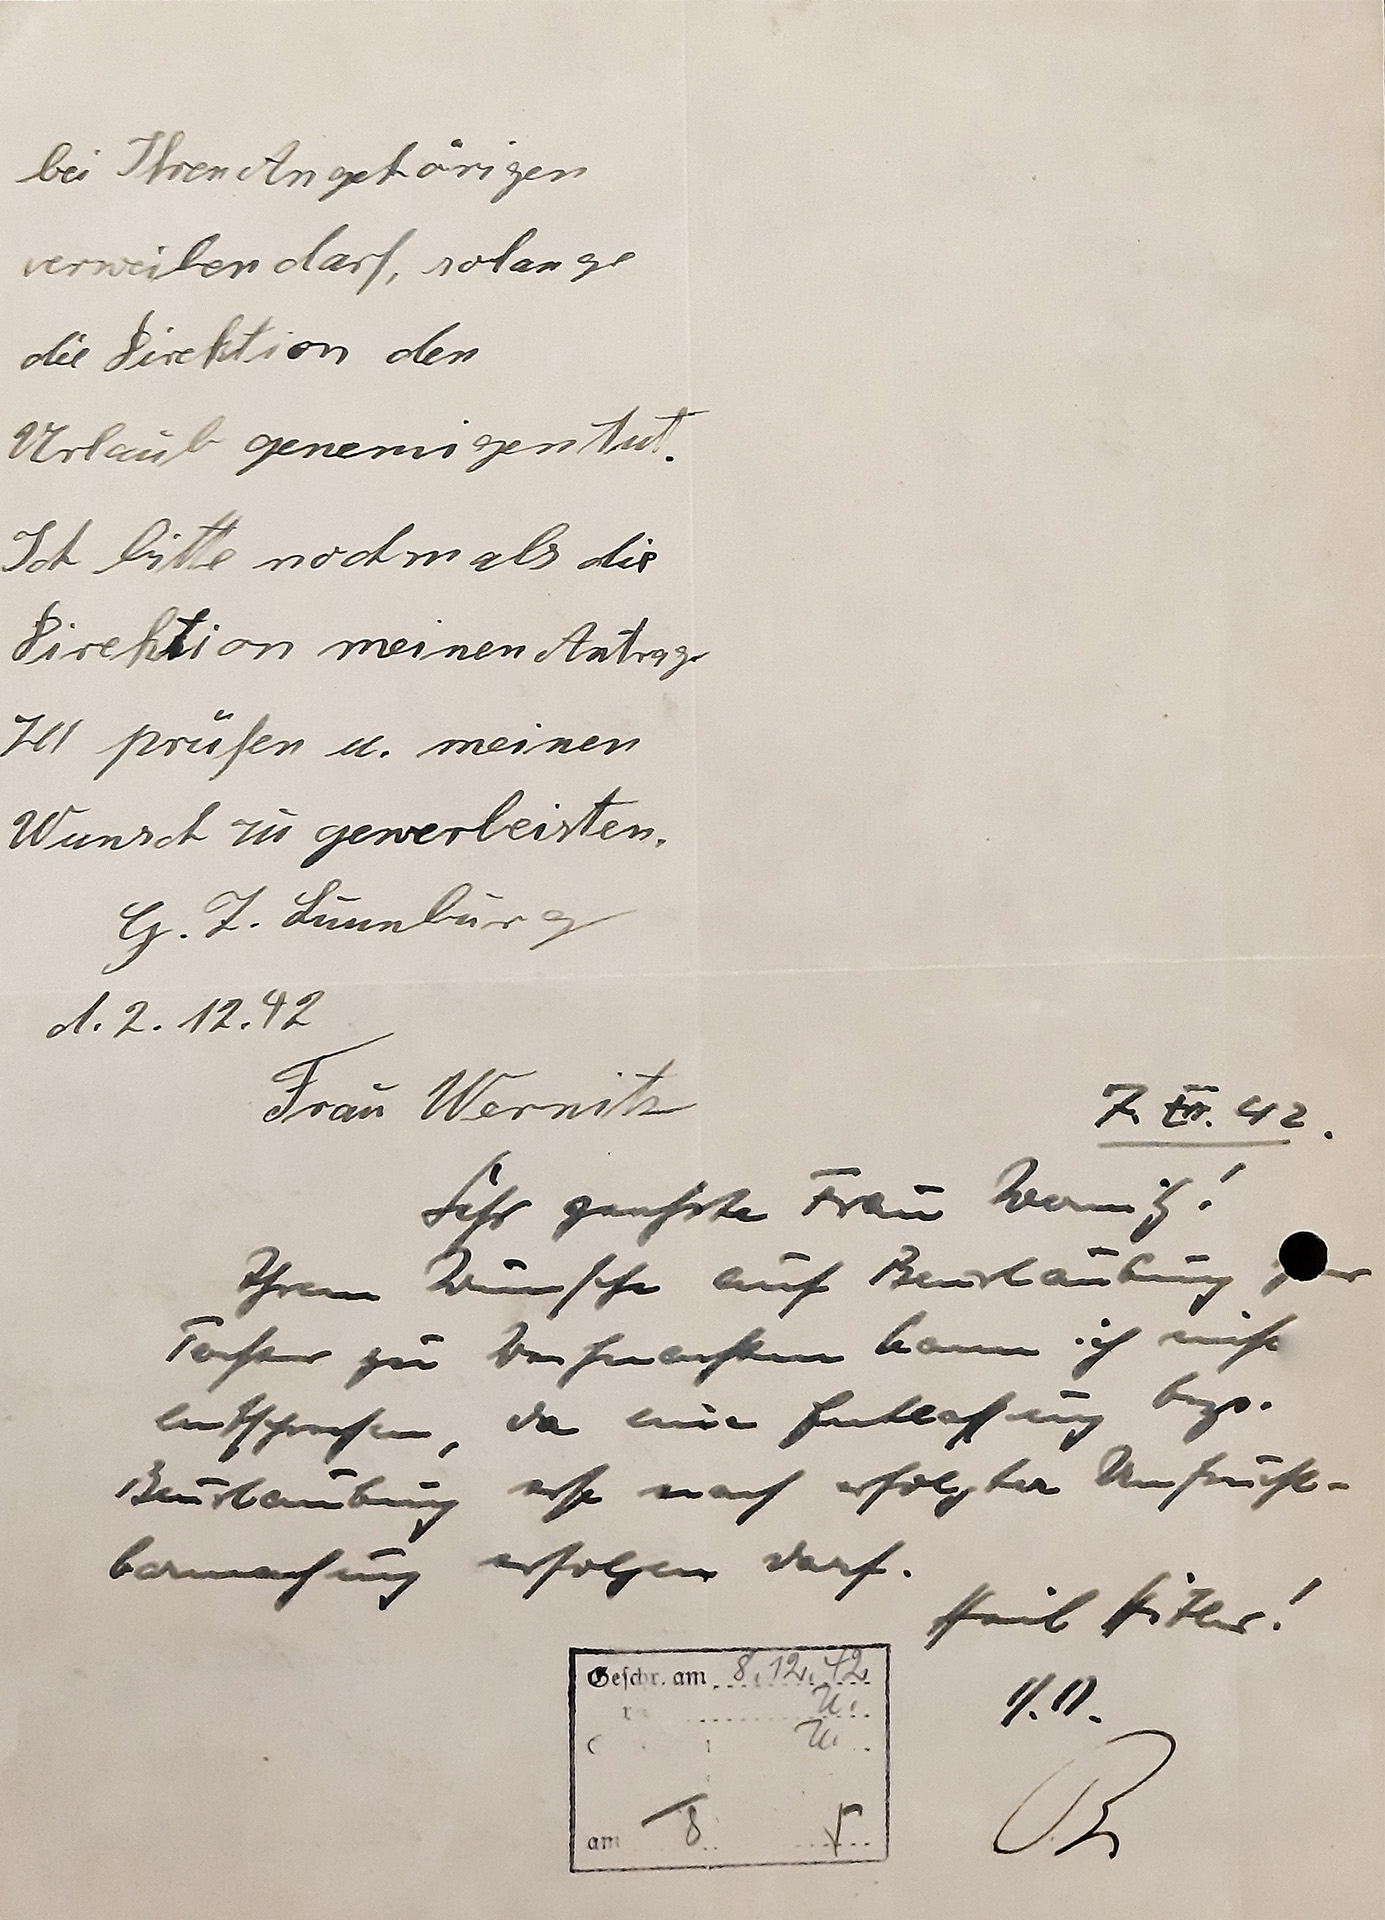 bei Ihren Angehörigen
verweilen darf, solange
die Direktion den
Urlaub genemigen tut.
Ich bitte nochmals die
Direktion meinen Antrag
zu prüfen u. meinen
Wunsch zu gewerleisten.
G. Z. Lünnbürg
d. 2. 12. 42
Frau Wernitz
7. XII. 42.
Sehr geehrte Frau Wernitz!
Ihrem Wunsche auf Beurlaubung Ihrer
Tochter zu Weihnachten kann ich nicht
entsprechen, da eine Entlassung bezw.
Beurlaubung erst nach erfolgter Unfrucht-
barmachung erfolgen darf.
Heil Hitler!
Geschr. am 8.12.42.
am 8